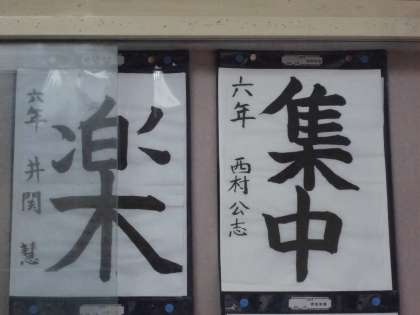 集中
六年 西村公志
楽
六年 井関 慧